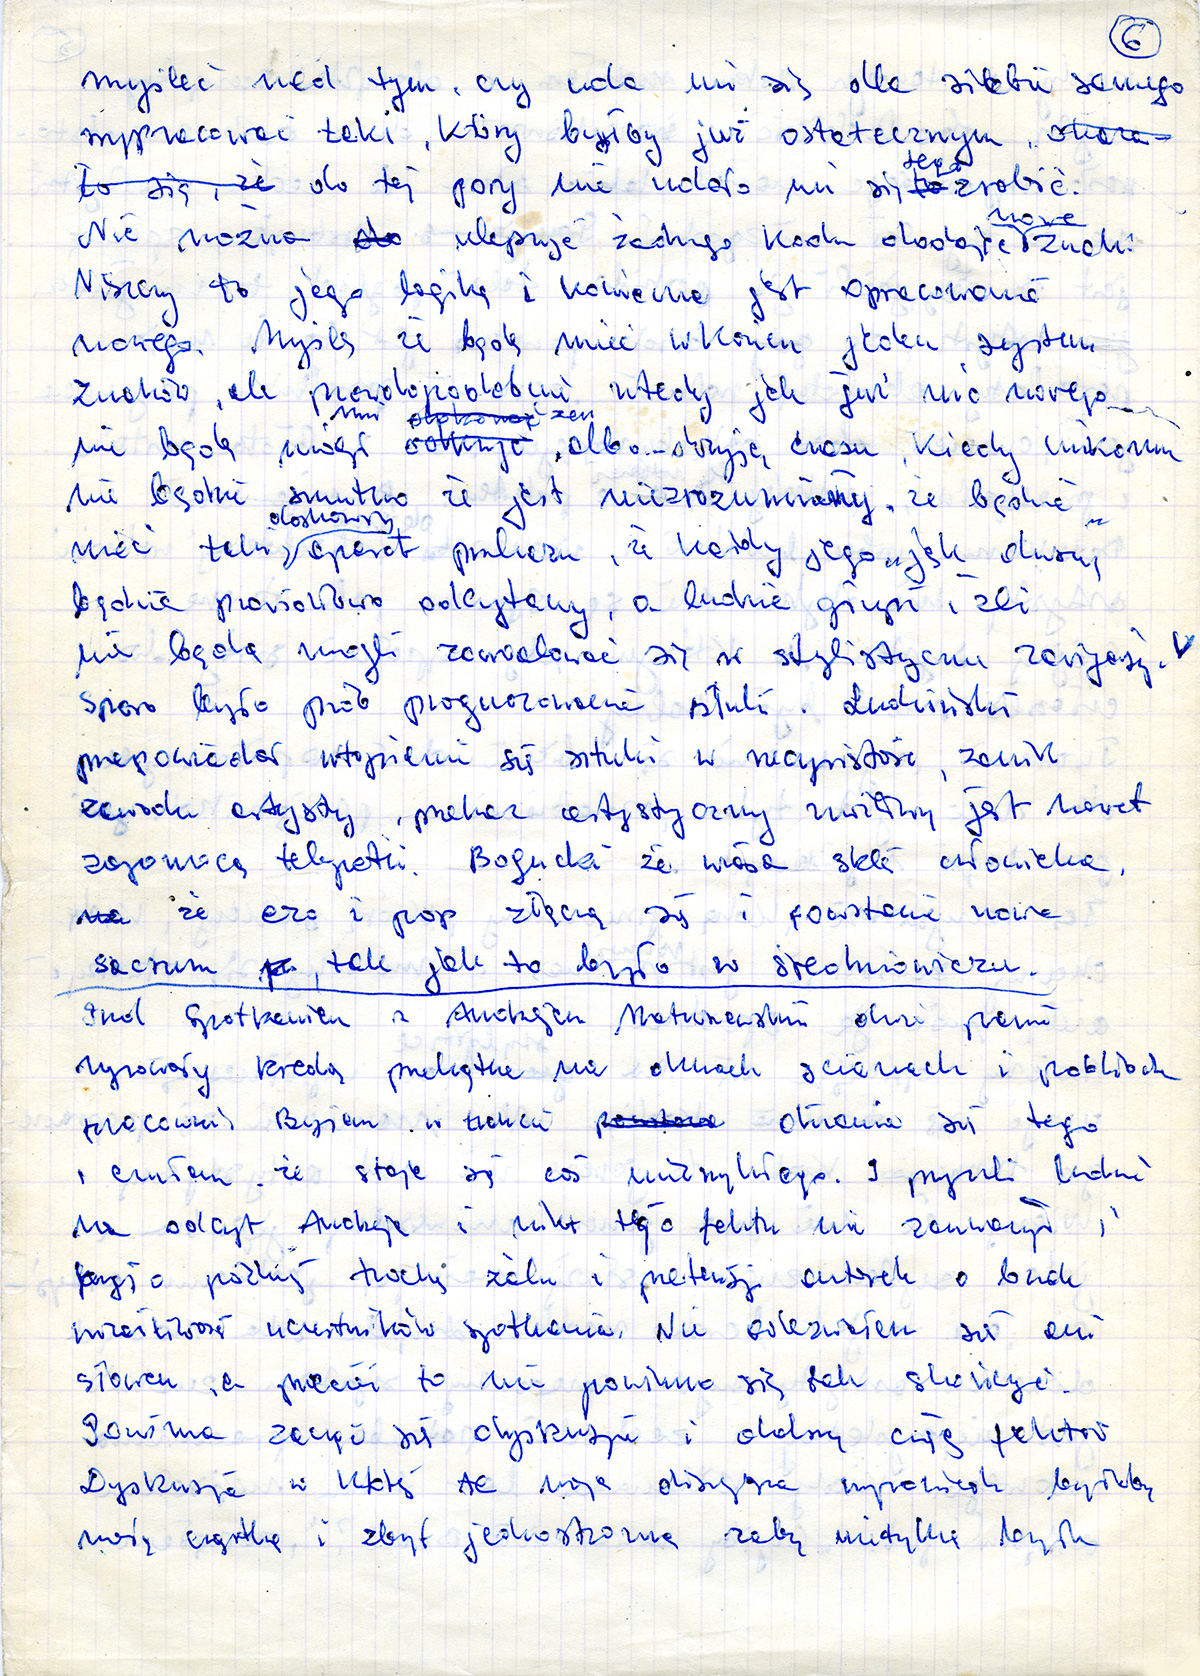 6
myśleć nad tym, czy uda mi się dla siebie samego
wypracować taki, który byłby już ostatecznym, okaza-
ło się, że do tej pory nie udało mi się to tego zrobić.
Nie można do ulepszyć żadnego kodu dodając nowe znaki.
Niszczy to jego logikę i konieczne jest opracowanie
nowego. Myślę że będę mieć w końcu jeden system
znaków, ale prawdopodobnie wtedy jak już nic nowego
nie będę mógł odkryć dokonać, albo dożyję czasu, kiedy nikomu
nie będzie smutno że jest niezrozumiany, że będzie
mieć taki doskonały aparat przekazu, że każdy jego „jęk duszy”
będzie prawidłowo odczytany, a ludzie głupi i źli
nie będą mogli zawoalować się w stylistyczne zawijasy. V
Sporo było prób prognozowania sztuki. Ludwiński
przepowiadał wtopienie się sztuki w rzeczywistość, zanik
zawodu artysty, przekaz artystyczny możliwy jest nawet
za pomocą telepatii. Bogucki że wraca skala człowieka,
na że era i pop złączą się i powstanie nowe
sacrum, tak jak to było w średniowieczu.
Przed spotkaniem z Andrzejem Matuszewskim dwie panie
rysowały kredą przekątne na oknach ścianach i pobliżu
pracowni. Byłem w trakcie dziania się tego
i czułem, że staje się coś niezwykłego. I przyszli ludzie
na odczyt Andrzeja i nikt tego faktu nie zauważył i
było później trochę żalu i pretensji autorek o brak
wrażliwości uczestników spotkania. Nie odezwałem się ani
słowem, a przecież to nie powinno się tak skończyć.
Powinna zacząć się dyskusja i dalszy ciąg faktów
Dyskusja w której ta moja dzisiejsza wypowiedź byłaby
małą cząstką i zbyt jednostronną żeby nie tylko była